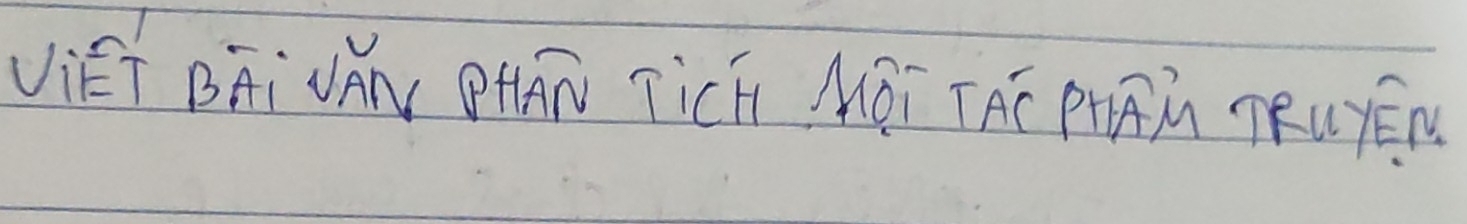 VIẾT BÀI VĂN PHÂN TÍCH MỘT TÁC PHẨM TRUYỆN.